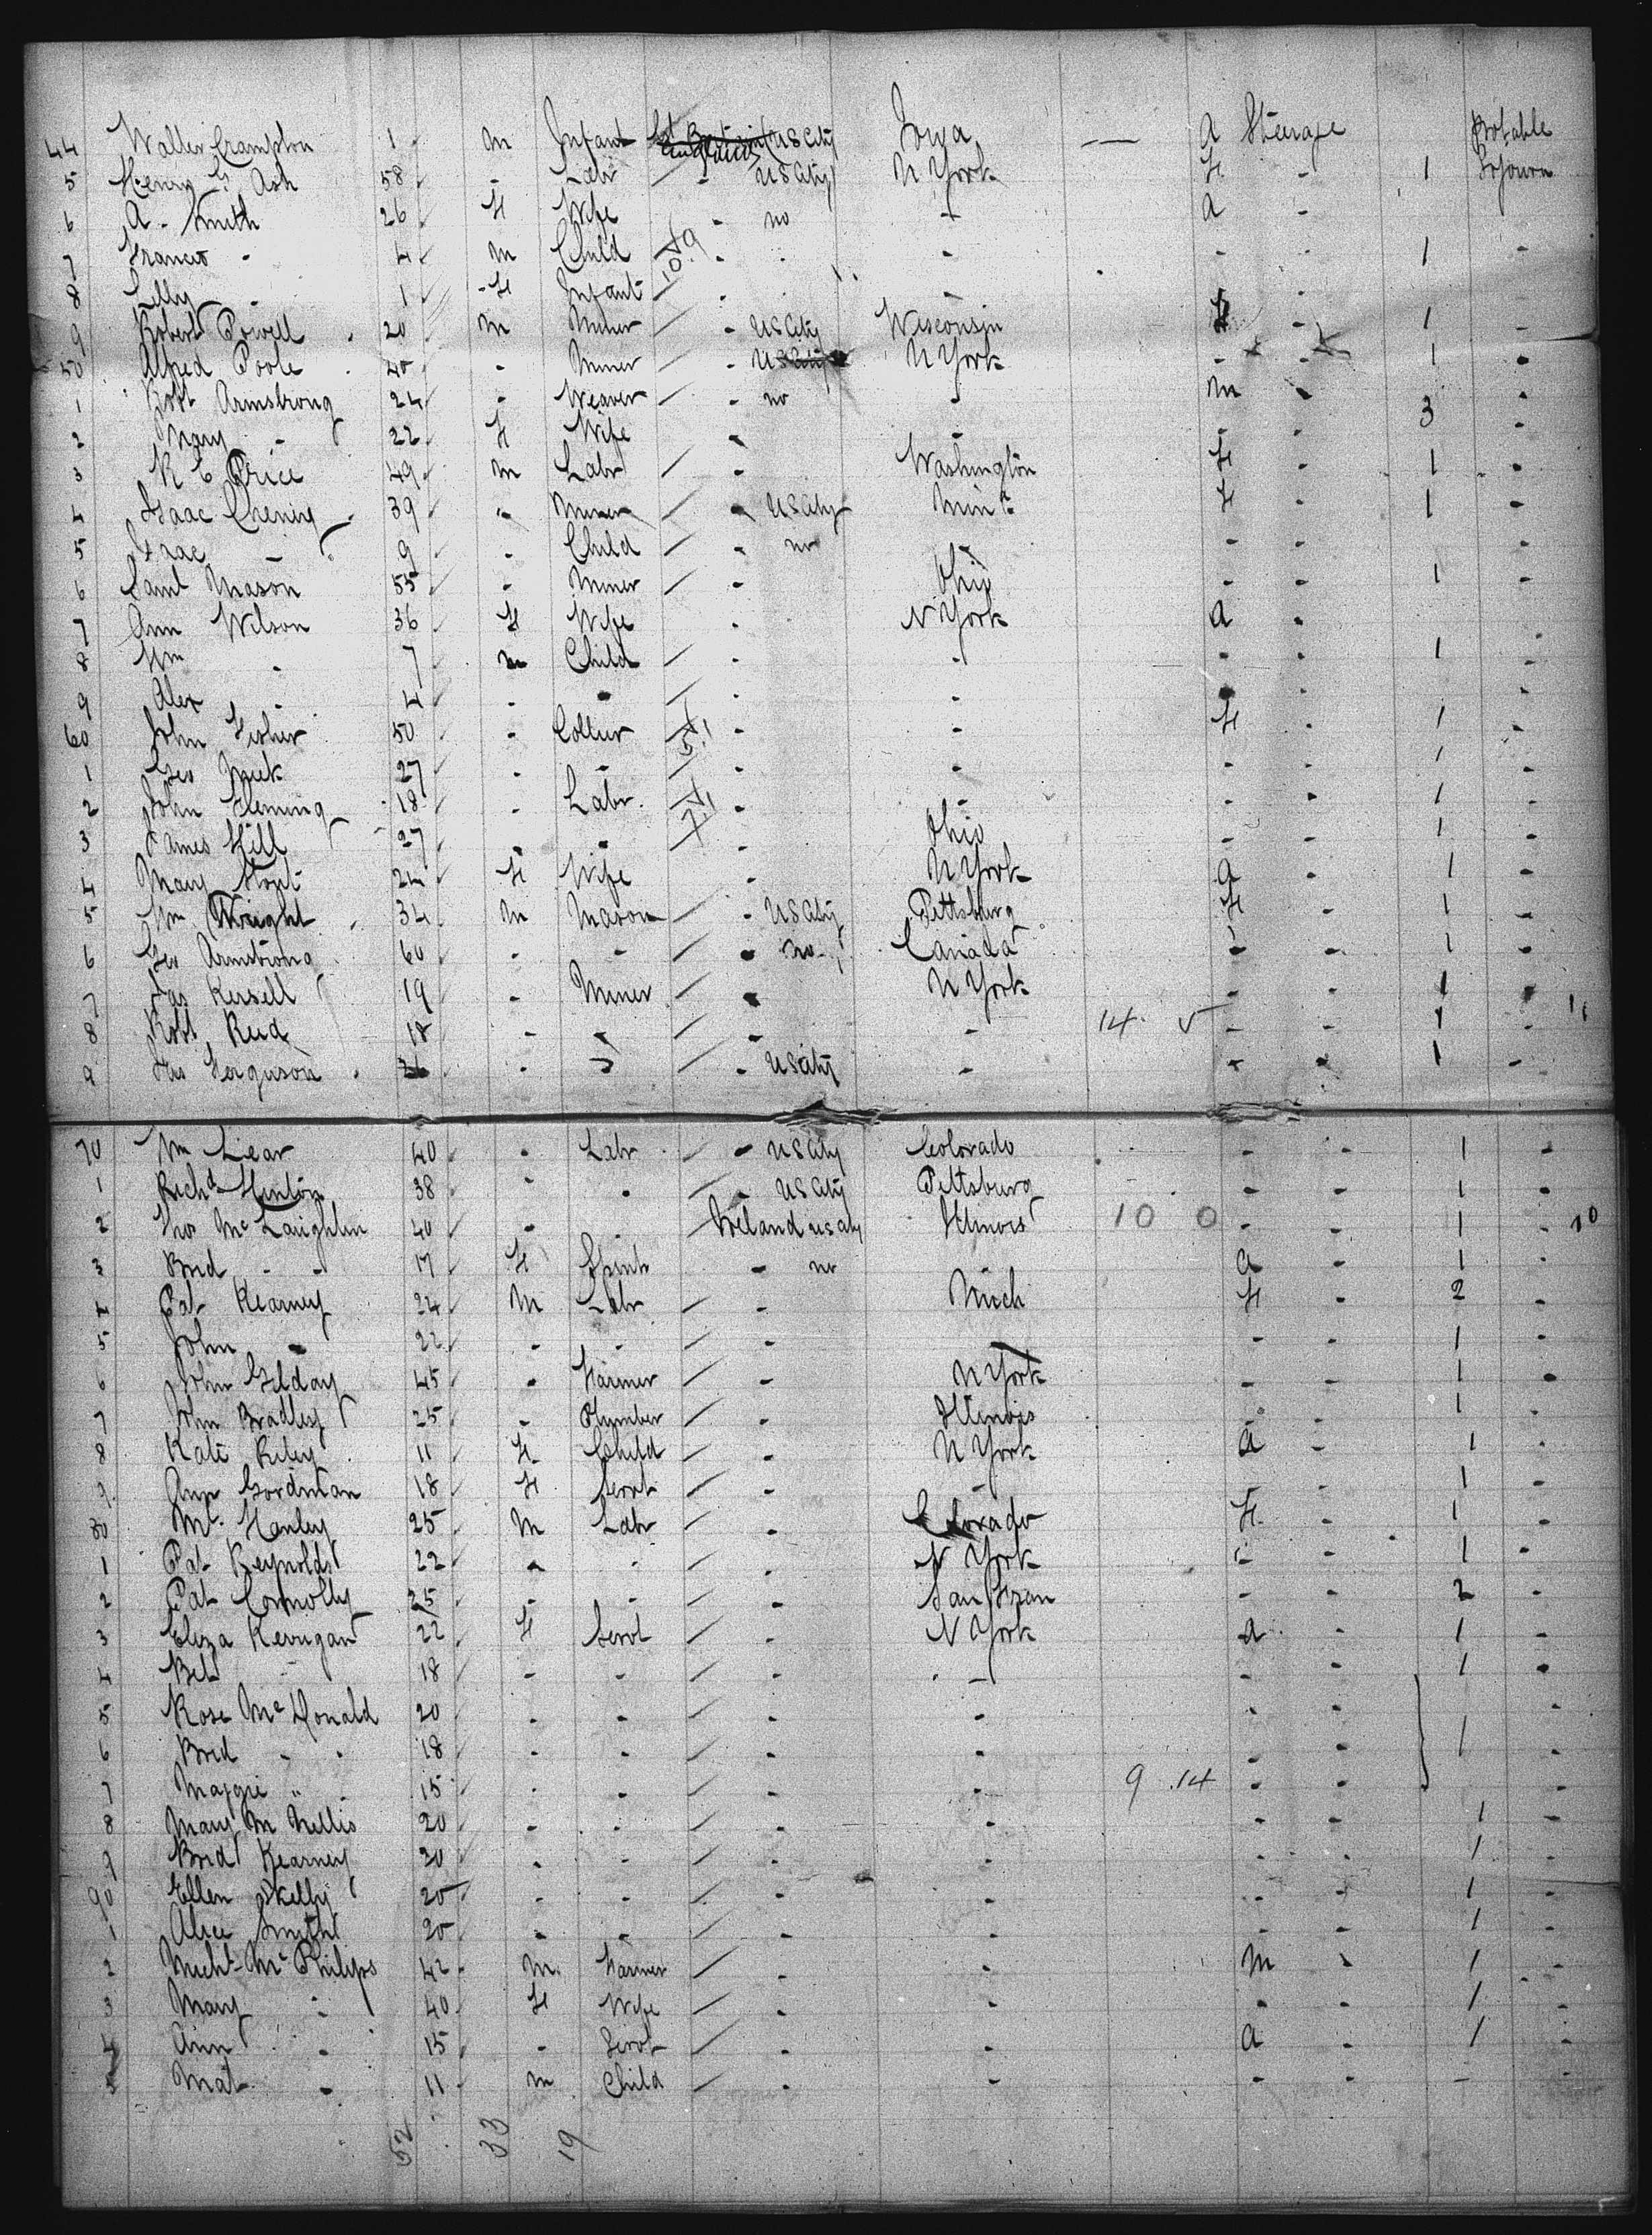 44 Walter Crampton 1 M Infant Gt Britain US City Iowa — A Steerage Probable
5 Henry G Ash 58 - Labr - US City N York F - 1 Sojourn
6 A. Smith 26 F Wife - no - A -
7 Francis - 4 M Child - - - - 1 -
8 Lilly - 1 F Infant - - -
9 Robert Powell 20 M Miner - US City Wisconsin F - 1 -
50 Alfred Poole 40 - Miner - US City N York - - 1 -
1 Robt Armstrong 24 - Weaver - no - M - -
2 Mary - 22 F Wife - - - - 3 -
3 R E Price 49 M Labr - Washington F - 1 -
4 Isaac Chening 39 - Miner - US City Minn F - 1 -
5 Isaac - 9 - Child - no - - - -
6 Saml Mason 55 - Miner - Ohio - - 1 -
7 Ann Wilson 36 F Wife - N York A -
8 Wm - 7 M Child - - - - 1 -
9 Alex - 4 - - - - - - -
60 John Fisher 50 - Collier - - F - 1 -
1 Geo Meek 27 - - - - - - 1 -
2 John Fleming 18 - Labr. - - - - 1 -
3 James Hill 27 - - - Ohio - - 1 -
4 Mary Stout 24 F Wife - N York A - 1 -
5 Wm Wright 34 M Mason - US City Pittsburg F - 1 -
6 Geo Armstrong 60 - - - no Canada - - 1 -
7 Jas Kersell 19 - Miner - N York - - 1 -
8 Robt Reid 18 - - - - 14 5 - - 1 -
9 Jas Ferguson 26 - - - US City - - - 1 -
70 Wm Lear 40 - Labr - US City Colorado - - 1 -
1 Richd Hinton 38 - - - US City Pittsburg - - 1 -
2 Thos McLaughlin 40 - - Ireland US City Illinois 10 0 - - 1 - 10
3 Brid - - 17 F Spinst - no A - 1
4 Pat Kearney 24 M Labr - Mich F - 2 -
5 John - 22 - - - - - 1 -
6 John Gilday 45 - Farmer - N York - - 1 -
7 John Bradley 25 - Plumber - Illinois - - 1 -
8 Kate Riley 11 F Child - N York A - 1 -
9 Ann Gordman 18 F Servt - - - - 1 -
80 Ml. Hanley 25 M Labr - Colorado F - 1 -
1 Pat Reynolds 22 - - - N York - - 1 -
2 Pat Connolly 25 - - - San Fran - - 2 -
3 Eliza Kerrigan 22 F Servt - N York A - 1 -
4 Bet - 18 - - - - - - 1 -
5 Rose McDonald 20 - - - - - - -
6 Brid - - 18 - - - - - - 1 -
7 Maggie " 15 - - - - 9 14 - -
8 Mary M Nellis 20 - - - - - - 1 -
9 Brid Kearney 20 - - - - - - 1 -
90 Ellen Skelly 20 - - - - - - 1 -
1 Alice Smith 20 - - - - - - 1 -
2 Michl McPhilips 42 M Farmer - - M - 1 -
3 Mary - 40 F Wife - - - - 1 -
4 Ann - 15 - Servt - - A - 1 -
5 Mat - 11 M Child - - - - - -
52 33 19